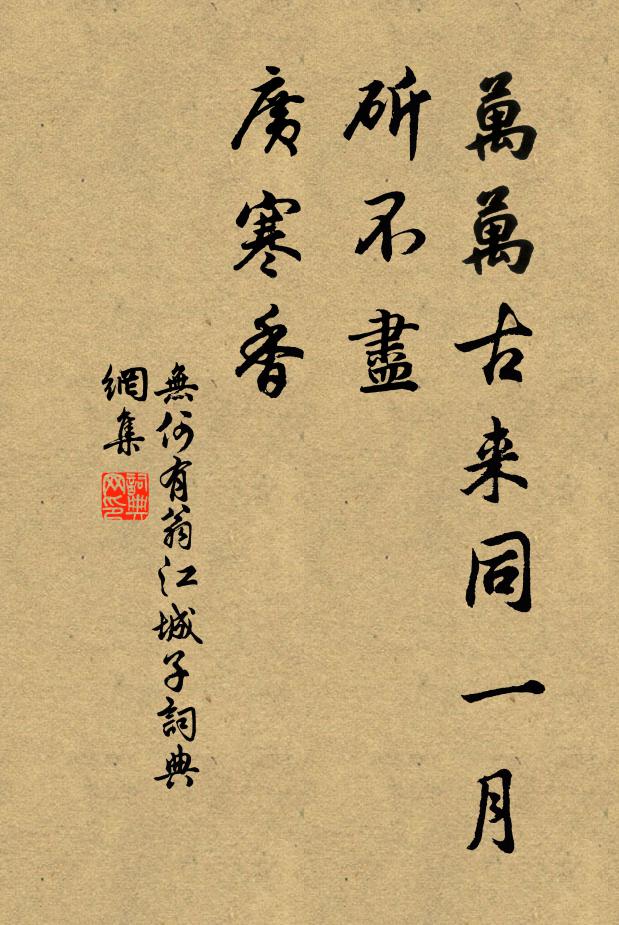 萬萬古来同一月
斫不盡
廣寒香
無何有翁江城子詞典
網集
詞典網印